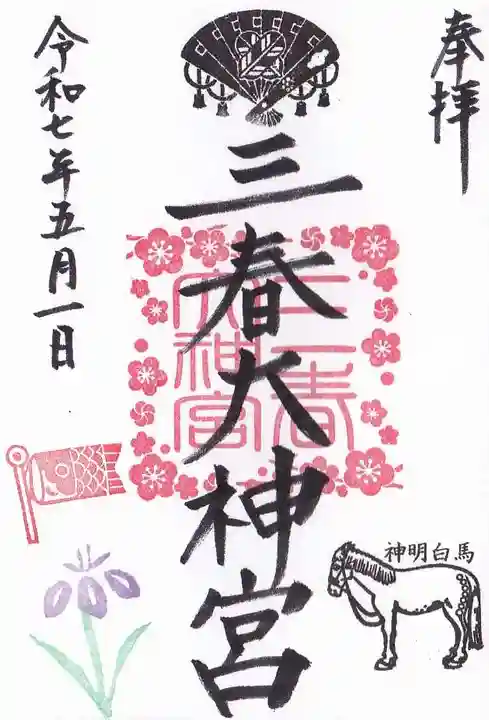 奉拝
三春大神宮
三春
大神宮
令和七年五月一日
神明白馬